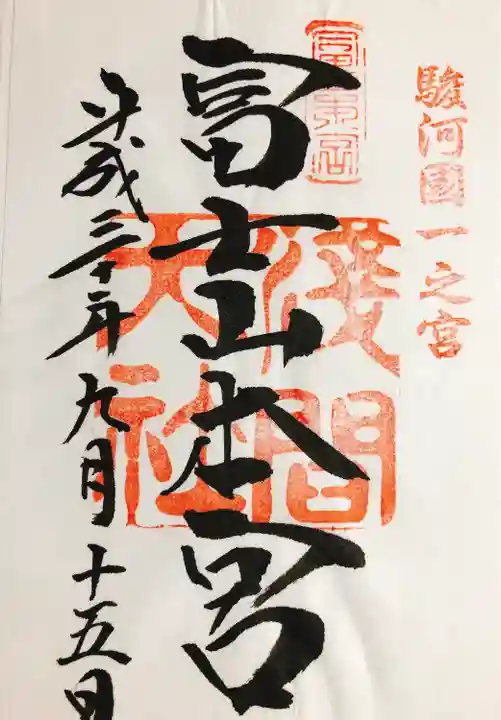 駿河國一之宮
富士本宮
富士山本宮
淺間大社
平成三十年九月十五日